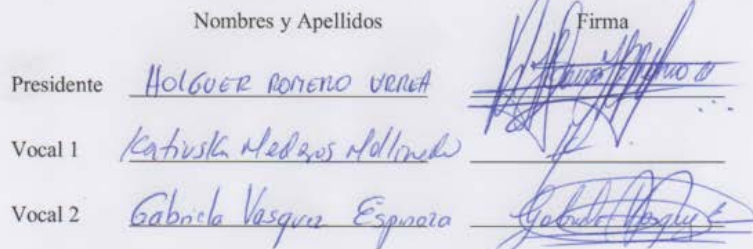 Nombres y Apellidos Firma
Presidente HOLGUER ROMERO URREA
Vocal 1 Katiuska Mederos Mollineda
Vocal 2 Gabriela Vasquez Espinoza